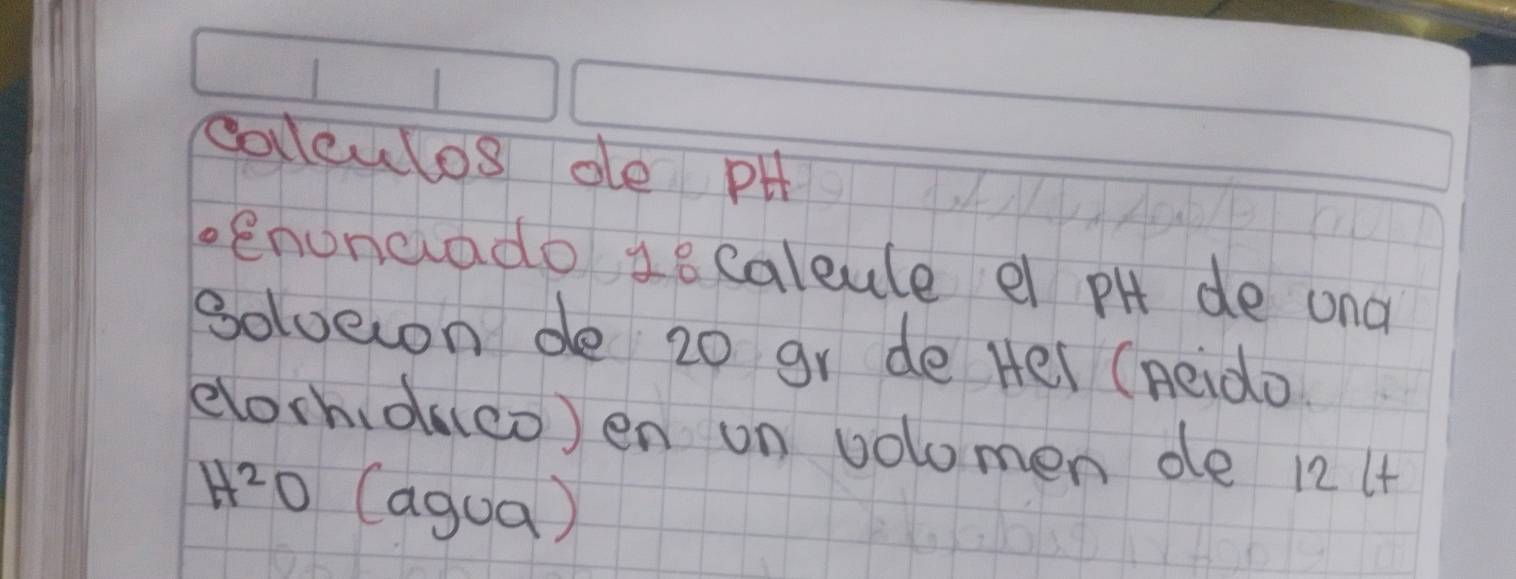 Calculos de PH
• Enunciado 1: Calcule el PH de una
Solucion de 20 gr de Hcl (Acido
clorhidrico) en un volumen de 12 lt
H²O (agua)